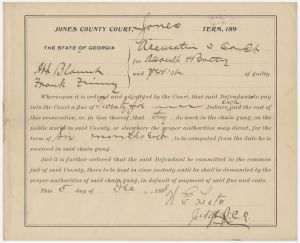 JONES COUNTY COURT, Jones TERM, 189
THE STATE OF GEORGIA
Accusation & Co Ct
for Assault & Battery
and verdict of guilty
Frank
Whereupon it is ordered and adjudged by the Court, that said Defendants do pay
each
into the Court a fine of Twenty five Dollars and the cost of
this prosecution, or, in lieu thereof, that they do work in the chain gang, on the
public works in said County, or elsewhere as the proper authorities may direct, for the
term of Six months each, to be computed from the date he is
received in said chain gang.
And it is further ordered that the said Defendant be committed to the common
jail of said county, there to be kept in close custody until he shall be demanded by
the proper authorities of said chain gang, in default of payment of said fine and costs.
This 5 day of Dec 189